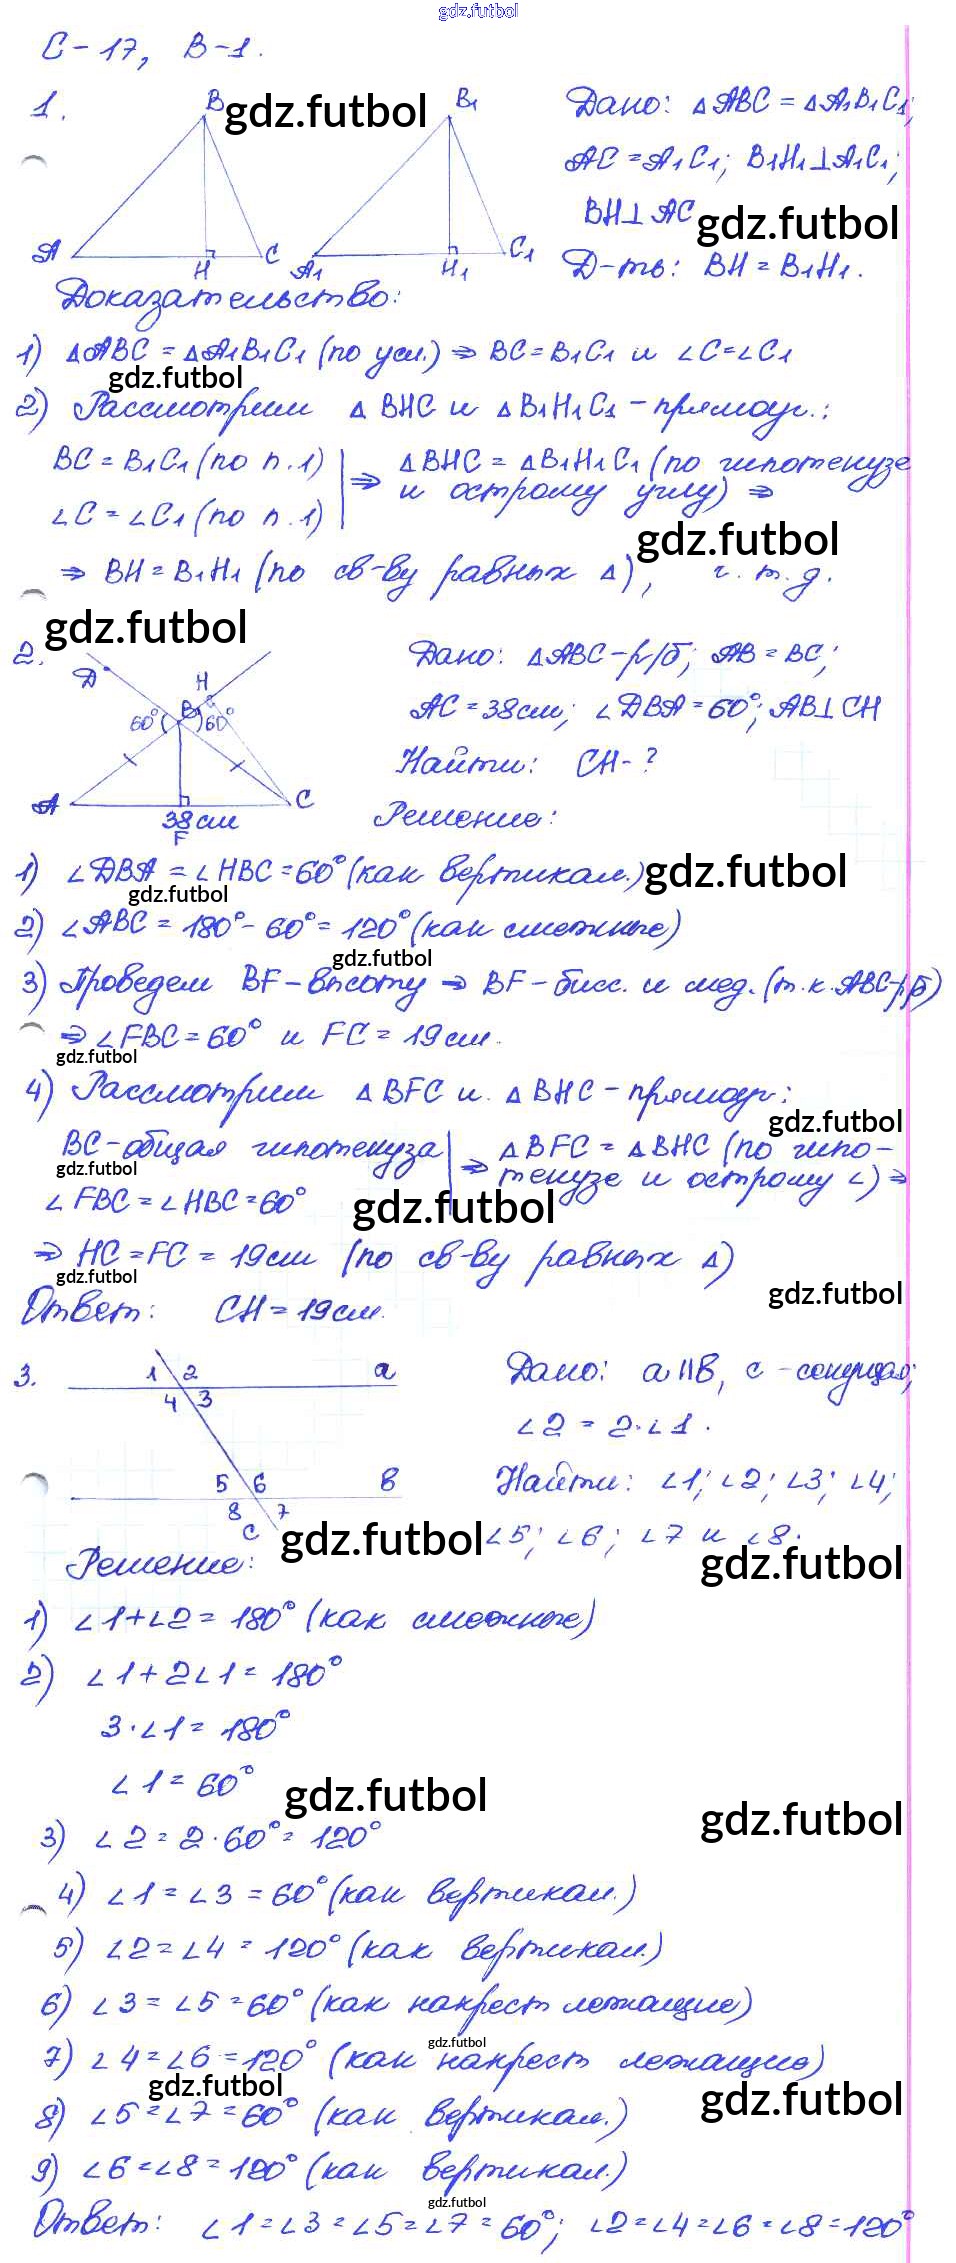 gdz.futbol
С-17, В-1.
1.
B
gdz.futbol
B₁
A
H
C
A₁
H₁
C₁
Дано: △ABC = △A₁B₁C₁;
AC = A₁C₁; B₁H₁⊥A₁C₁;
BH⊥AC
gdz.futbol
Д-ть: BH = B₁H₁.
Доказательство:
1) △ABC = △A₁B₁C₁ (по усл.) ⇒ BC = B₁C₁ и ∠C = ∠C₁
gdz.futbol
2) Рассмотрим △BHC и △B₁H₁C₁ - прямоуг.:
BC = B₁C₁ (по п.1)
∠C = ∠C₁ (по п.1)
⇒ △BHC = △B₁H₁C₁ (по гипотенузе
и острому углу) ⇒
gdz.futbol
⇒ BH = B₁H₁ (по св-ву равных △), ч.т.д.
gdz.futbol
2.
D
H
B
60°
60°
A
C
38 см
F
Дано: △ABC - р/б; AB = BC;
AC = 38 см; ∠DBA = 60°; AB⊥CH
Найти: CH - ?
Решение:
1) ∠DBA = ∠HBC = 60° (как вертикал.)
gdz.futbol
gdz.futbol
2) ∠ABC = 180° - 60° = 120° (как смежные)
gdz.futbol
3) Проведем BF - высоту ⇒ BF - бисс. и мед. (т.к. ABC - р/б)
⇒ ∠FBC = 60° и FC = 19 см.
gdz.futbol
4) Рассмотрим △BFC и △BHC - прямоуг.:
gdz.futbol
BC - общая гипотенуза
gdz.futbol
∠FBC = ∠HBC = 60°
⇒ △BFC = △BHC (по гипо-
тенузе и острому ∠) ⇒
gdz.futbol
⇒ HC = FC = 19 см (по св-ву равных △)
gdz.futbol
gdz.futbol
Ответ: CH = 19 см.
3.
1 2
a
4 3
5 6
в
8 7
c
Дано: a ∥ в, c - секущая;
∠2 = 2·∠1.
Найти: ∠1; ∠2; ∠3; ∠4;
∠5; ∠6; ∠7 и ∠8.
gdz.futbol
gdz.futbol
Решение:
1) ∠1 + ∠2 = 180° (как смежные)
2) ∠1 + 2∠1 = 180°
3·∠1 = 180°
∠1 = 60°
gdz.futbol
gdz.futbol
3) ∠2 = 2·60° = 120°
4) ∠1 = ∠3 = 60° (как вертикал.)
5) ∠2 = ∠4 = 120° (как вертикал.)
6) ∠3 = ∠5 = 60° (как накрест лежащие)
gdz.futbol
7) ∠4 = ∠6 = 120° (как накрест лежащие)
gdz.futbol
gdz.futbol
8) ∠5 = ∠7 = 60° (как вертикал.)
9) ∠6 = ∠8 = 120° (как вертикал.)
gdz.futbol
Ответ: ∠1 = ∠3 = ∠5 = ∠7 = 60°; ∠2 = ∠4 = ∠6 = ∠8 = 120°